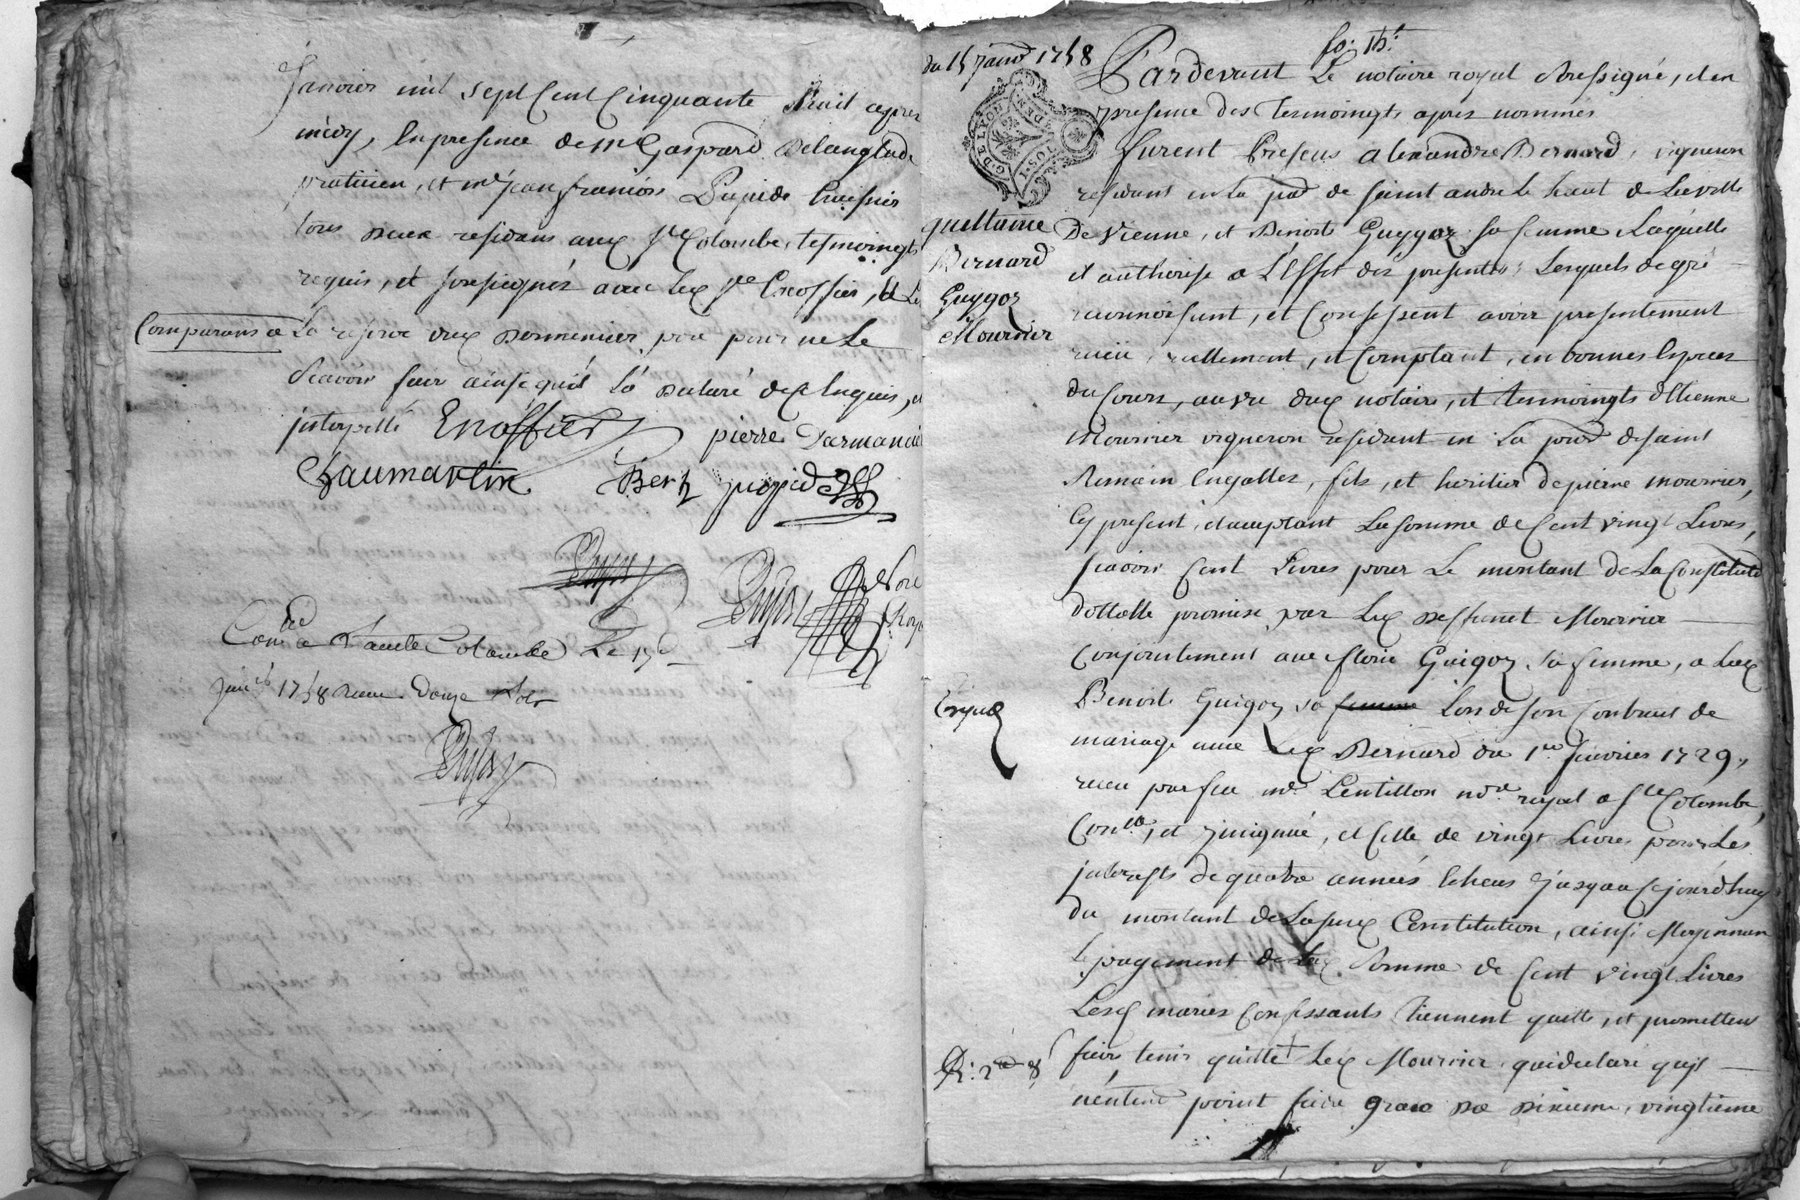 Janvier mil sept Cent Cinquante huit apres
midy, En presence de mr Gaspard Delanglade
praticien, et me jean francois Pupide huissier
tous deux residans aux ste Colombe tesmoingts
requis, et soussignés avec les
Comparans a
seavoir faire ainsi quil la declaré de ce Enquis, et
interpellé
pierre Darmancie
Chaumartin
Bert
pupide
Conllé a Sainte Colombe Le 15e
janer 1758 receu Douze sols
du 15 janer 1758
quittance
Bernard
Guygoz
Mournier
fo: 15:
Pardevant Le notaire royal soussigné, et en
presence des Tesmoingts apres nommés
furent Presens alexandre Bernard, vigneron
residant en la paroisse de saint andre le haut de La ville
De Vienne, et Benoite Guygoz sa femme Laquelle
il authorise a L'Effet des presentes; Lesquels de gré
reconnoissent, et Confessent avoir presentement
receu, reellement, et Comptant, en bonnes Especes
du Cours, au vu dux notaire, et tesmoingts d'Etienne
Mournier vigneron residant en La parsse de saint
Romain Engalles, fils, et heritier de pierre mournier,
Cy present, et acceptant La somme de Cent vingt Livres,
scavoir Cent Livres pour Le montant de La Constitution
dottalle promise par Lex deffunct Mournier
Conjointement avec florie Guigoz sa femme, a Lax
Benoite Guigoz sa femme Lors de son Contract de
mariage avec Lex Bernard du 1er fevrier 1729,
receu par feu me Lentillon nore royal a ste Colombe,
Conllé, et Insignué, et Celle de vingt Livres pour Les
interests de quatre années Echeus Jusqua a Cejourd'huy
du montant de La susx Constitution, ainsi Moyennant
Le payement de Lax somme de Cent vingt Livres
Lesx mariés Confessants tiennent quitte, et promettent
faire tenir quitte Lex Mournier qui declare quil
n'entend point faire grace du dixieme, vingtieme